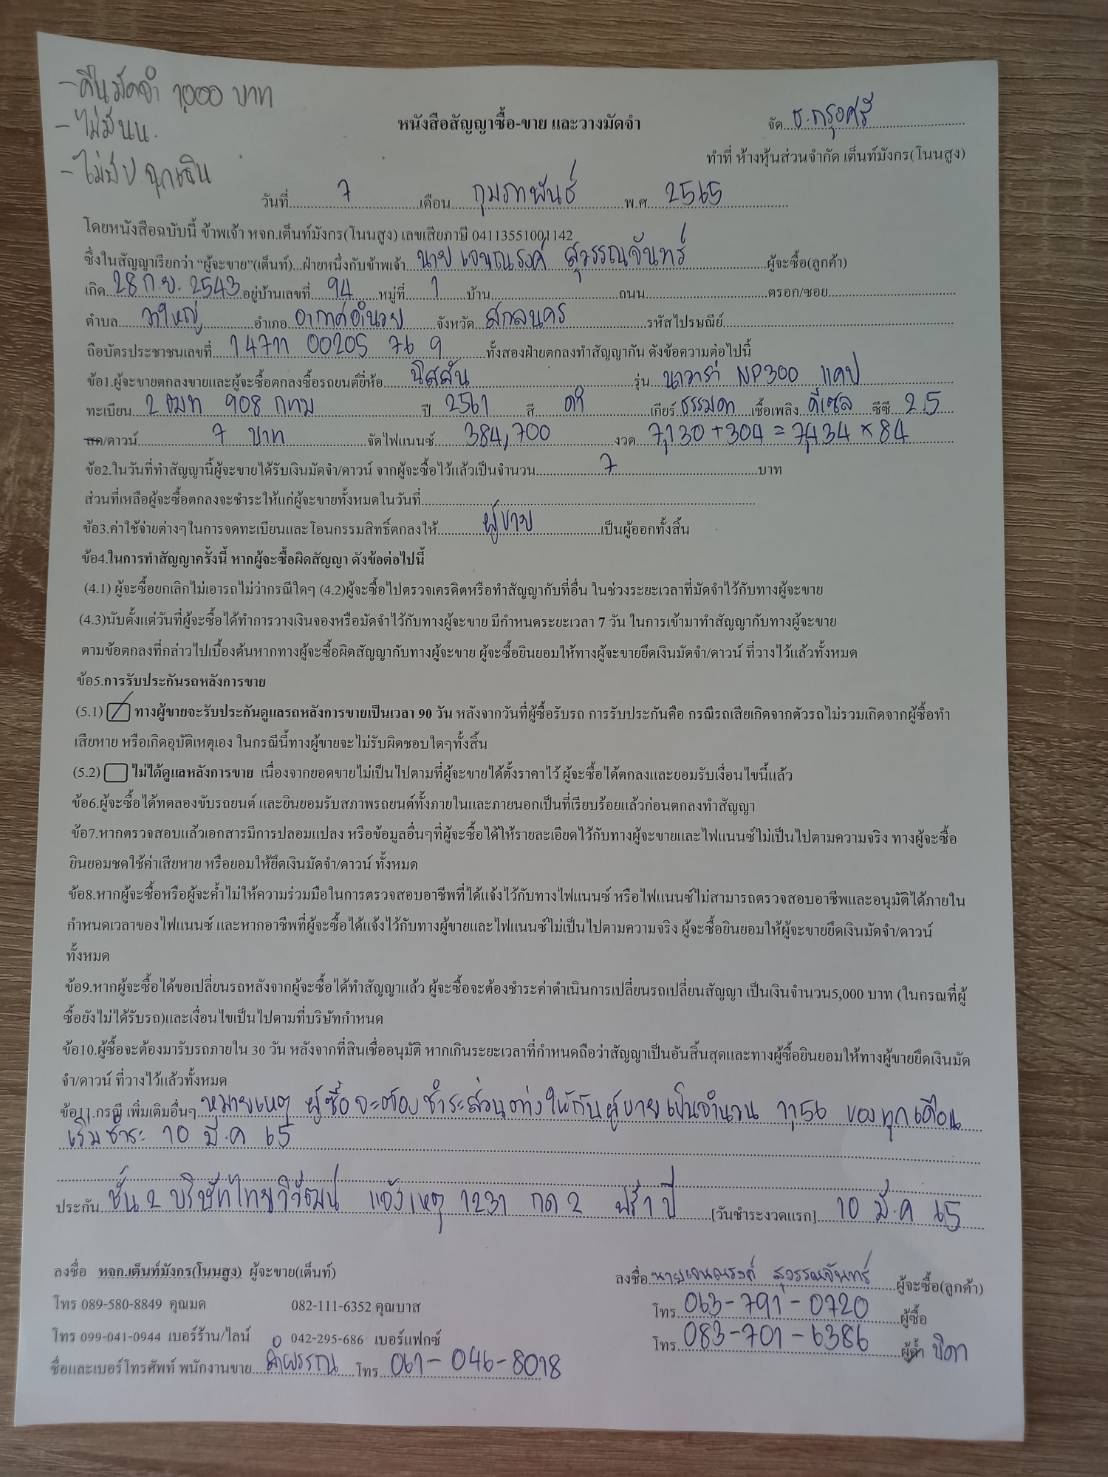 - คืนมัดจำ 1,000 บาท
- ไม่มี นน.
- ไม่มีป ฉุกเฉิน
หนังสือสัญญาซื้อ-ขาย และวางมัดจำ
จัด ธ.กรุงศรี
ทำที่ ห้างหุ้นส่วนจำกัด เต็นท์มังกร(โนนสูง)
วันที่ 7 เดือน กุมภาพันธ์ พ.ศ 2565
โดยหนังสือฉบับนี้ ข้าพเจ้า หจก.เต็นท์มังกร(โนนสูง) เลขเสียภาษี 04113551001142
ซึ่งในสัญญาเรียกว่า "ผู้จะขาย"(เต็นท์)...ฝ่ายหนึ่งกับข้าพเจ้า นาย เจนณรงค์ สุวรรณจันทร์ ผู้จะซื้อ(ลูกค้า)
เกิด 28 ก.ย. 2543 อยู่บ้านเลขที่ 94 หมู่ที่ 1 บ้าน ถนน ตรอก/ซอย
ตำบล วาใหญ่ อำเภอ อากาศอำนวย จังหวัด สกลนคร รหัสไปรษณีย์
ถือบัตรประชาชนเลขที่ 1 4711 00205 76 9 ทั้งสองฝ่ายตกลงทำสัญญากัน ดังข้อความต่อไปนี้
ข้อ1.ผู้จะขายตกลงขายและผู้จะซื้อตกลงซื้อรถยนต์ยี่ห้อ นิสสัน รุ่น นาวาร่า NP300 แคป
ทะเบียน 2 ฒท 908 กทม ปี 2561 สี ดำ เกียร์ ธรรมดา เชื้อเพลิง ดีเซล ซีซี 2.5
สด/ดาวน์ 7 บาท จัดไฟแนนซ์ 384,700 งวด 7,130 + 304 = 7,434 × 84
ข้อ2.ในวันที่ทำสัญญานี้ผู้จะขายได้รับเงินมัดจำ/ดาวน์ จากผู้จะซื้อไว้แล้วเป็นจำนวน 7 บาท
ส่วนที่เหลือผู้จะซื้อตกลงจะชำระให้แก่ผู้จะขายทั้งหมดในวันที่
ข้อ3.ค่าใช้จ่ายต่างๆในการจดทะเบียนและโอนกรรมสิทธิ์ตกลงให้ ผู้ขาย เป็นผู้ออกทั้งสิ้น
ข้อ4.ในการทำสัญญาครั้งนี้ หากผู้จะซื้อผิดสัญญา ดังข้อต่อไปนี้
(4.1) ผู้จะซื้อยกเลิกไม่เอารถไม่ว่ากรณีใดๆ (4.2)ผู้จะซื้อไปตรวจเครดิตหรือทำสัญญากับที่อื่น ในช่วงระยะเวลาที่มัดจำไว้กับทางผู้จะขาย
(4.3)นับตั้งแต่วันที่ผู้จะซื้อได้ทำการวางเงินจองหรือมัดจำไว้กับทางผู้จะขาย มีกำหนดระยะเวลา 7 วัน ในการเข้ามาทำสัญญากับทางผู้จะขาย
ตามข้อตกลงที่กล่าวไปเบื้องต้นหากทางผู้จะซื้อผิดสัญญากับทางผู้จะขาย ผู้จะซื้อยินยอมให้ทางผู้จะขายยึดเงินมัดจำ/ดาวน์ ที่วางไว้แล้วทั้งหมด
ข้อ5.การรับประกันรถหลังการขาย
(5.1) ทางผู้ขายจะรับประกันดูแลรถหลังการขายเป็นเวลา 90 วัน หลังจากวันที่ผู้ซื้อรับรถ การรับประกันคือ กรณีรถเสียเกิดจากตัวรถไม่รวมเกิดจากผู้ซื้อทำ
เสียหาย หรือเกิดอุบัติเหตุเอง ในกรณีนี้ทางผู้ขายจะไม่รับผิดชอบใดๆทั้งสิ้น
(5.2) ไม่ได้ดูแลหลังการขาย เนื่องจากยอดขายไม่เป็นไปตามที่ผู้จะขายได้ตั้งราคาไว้ ผู้จะซื้อได้ตกลงและยอมรับเงื่อนไขนี้แล้ว
ข้อ6.ผู้จะซื้อได้ทดลองขับรถยนต์ และยินยอมรับสภาพรถยนต์ทั้งภายในและภายนอกเป็นที่เรียบร้อยแล้วก่อนตกลงทำสัญญา
ข้อ7.หากตรวจสอบแล้วเอกสารมีการปลอมแปลง หรือข้อมูลอื่นๆที่ผู้จะซื้อได้ให้รายละเอียดไว้กับทางผู้จะขายและไฟแนนซ์ไม่เป็นไปตามความจริง ทางผู้จะซื้อ
ยินยอมชดใช้ค่าเสียหาย หรือยอมให้ยึดเงินมัดจำ/ดาวน์ ทั้งหมด
ข้อ8.หากผู้จะซื้อหรือผู้จะค้ำไม่ให้ความร่วมมือในการตรวจสอบอาชีพที่ได้แจ้งไว้กับทางไฟแนนซ์ หรือไฟแนนซ์ไม่สามารถตรวจสอบอาชีพและอนุมัติได้ภายใน
กำหนดเวลาของไฟแนนซ์ และหากอาชีพที่ผู้จะซื้อได้แจ้งไว้กับทางผู้ขายและไฟแนนซ์ไม่เป็นไปตามความจริง ผู้จะซื้อยินยอมให้ผู้จะขายยึดเงินมัดจำ/ดาวน์
ทั้งหมด
ข้อ9.หากผู้จะซื้อได้ขอเปลี่ยนรถหลังจากผู้จะซื้อได้ทำสัญญาแล้ว ผู้จะซื้อจะต้องชำระค่าดำเนินการเปลี่ยนรถเปลี่ยนสัญญา เป็นเงินจำนวน5,000 บาท (ในกรณที่ผู้
ซื้อยังไม่ได้รับรถ)และเงื่อนไขเป็นไปตามที่บริษัทกำหนด
ข้อ10.ผู้ซื้อจะต้องมารับรถภายใน 30 วัน หลังจากที่สินเชื่ออนุมัติ หากเกินระยะเวลาที่กำหนดถือว่าสัญญาเป็นอันสิ้นสุดและทางผู้ซื้อยินยอมให้ทางผู้ขายยึดเงินมัด
จำ/ดาวน์ ที่วางไว้แล้วทั้งหมด
ข้อ11.กรณี เพิ่มเติมอื่นๆ หมายเหตุ ผู้ซื้อจะต้องชำระส่วนต่างให้กับผู้ขายเป็นจำนวน 1,156 ของทุกเดือน
เริ่มชำระ 10 มี.ค 65
ประกัน ชั้น 2 บริษัทไทยวิวัฒน์ แจ้งเหตุ 1231 กด 2 ฟรี 1 ปี [วันชำระงวดแรก] 10 มี.ค 65
ลงชื่อ หจก.เต็นท์มังกร(โนนสูง) ผู้จะขาย(เต็นท์)
ลงชื่อ นายเจนณรงค์ สุวรรณจันทร์ ผู้จะซื้อ(ลูกค้า)
โทร 089-580-8849 คุณมด 082-111-6352 คุณบาส
โทร 063-791-0720 ผู้ซื้อ
โทร 099-041-0944 เบอร์ร้าน/ไลน์ 042-295-686 เบอร์แฟกซ์
โทร 083-701-6386 ผู้ค้ำ บิดา
ชื่อและเบอร์โทรศัพท์ พนักงานขาย โทร 061-046-8018